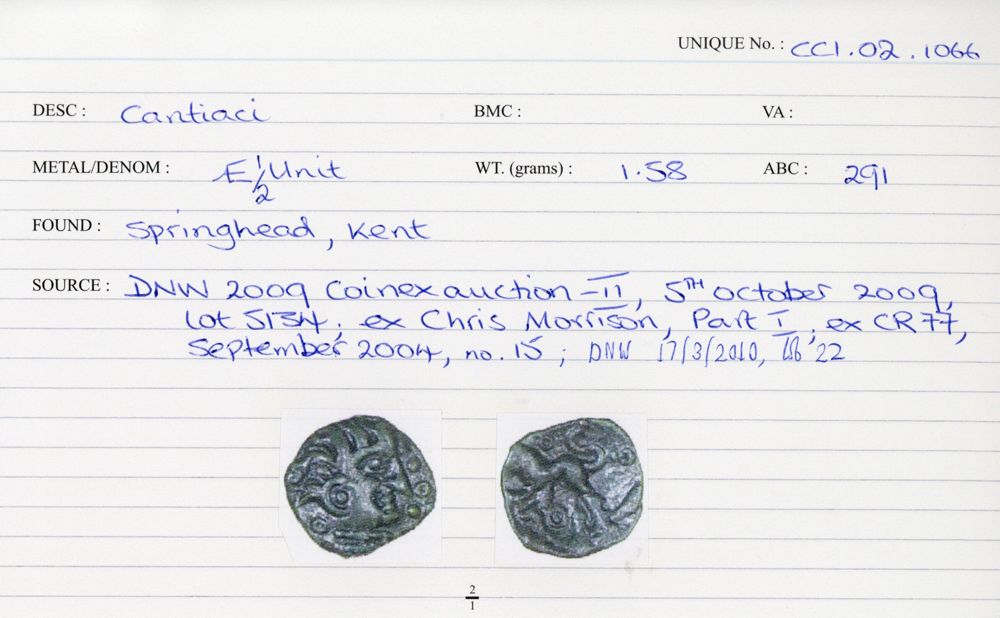 UNIQUE No. : CCI.02.1066
DESC : Cantiaci BMC : VA :
METAL/DENOM : Æ ½ Unit WT. (grams) : 1.58 ABC : 291
FOUND : Springhead, Kent
SOURCE : DNW 2009 Coinex auction - II, 5TH October 2009,
Lot 5134; ex Chris Morrison, Part I, ex CR 77,
September 2004, no. 15; DNW 17/3/2010, 22
2
1